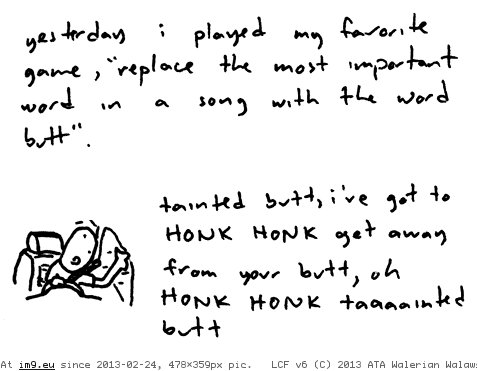 yesterday i played my favorite
game, "replace the most important
word in a song with the word
butt".
tainted butt, i've got to
HONK HONK get away
from your butt, oh
HONK HONK taaaainted
butt
At im9.eu since 2013-02-24, 478×359px pic. LCF v6 (C) 2013 ATA Walerian Walaws